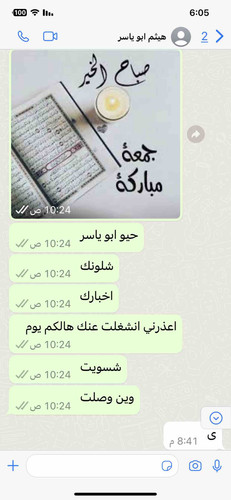 100 6:05
هيثم ابو ياسر 2
صباح الخير
جمعة
مباركة
10:24 ص
حيو ابو ياسر
10:24 ص
شلونك
10:24 ص
اخبارك
10:24 ص
اعذرني انشغلت عنك هالكم يوم
10:24 ص
شسويت
10:24 ص
وين وصلت
10:24 ص
ى
8:41 م